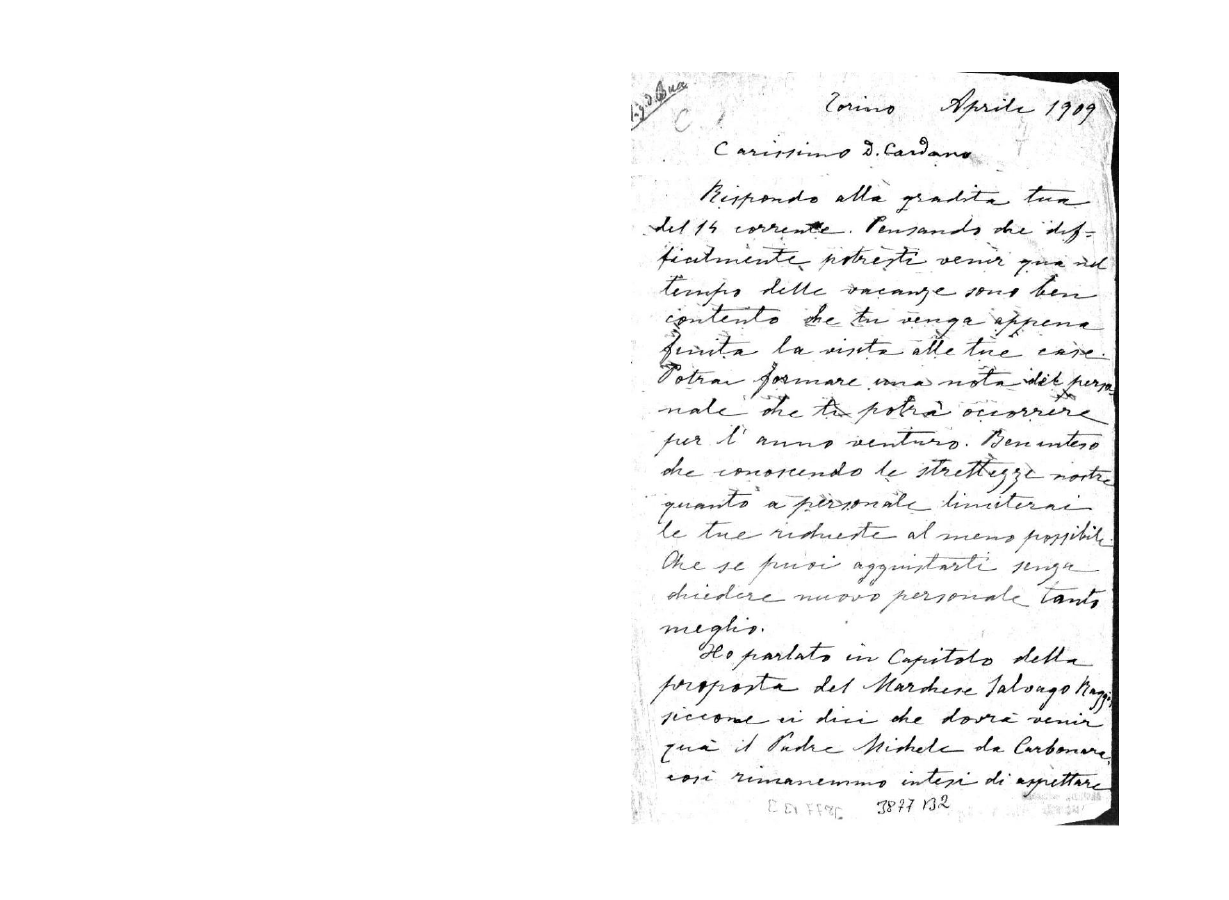 Torino Aprile 1909
Carissimo D. Cardano
Rispondo alla gradita tua
del 14 corrente. Pensando che dif-
ficilmente potresti venir qua nel
tempo delle vacanze sono ben
contento che tu venga appena
finita la visita alle tue case.
Potrai formare una nota del perso-
nale che ti potrà occorrere
per l'anno venturo. Ben inteso
che conoscendo le strettezze nostre
quanto a personale limiterai
le tue richieste al meno possibile.
Che se puoi aggiustarti senza
chiedere nuovo personale tanto
meglio.
Ho parlato in Capitolo della
proposta del Marchese Salvago Raggi,
siccome ci dici che dovrà venir
quà il Padre Michele da Carbonara,
così rimanemmo intesi di aspettare
3877 B2